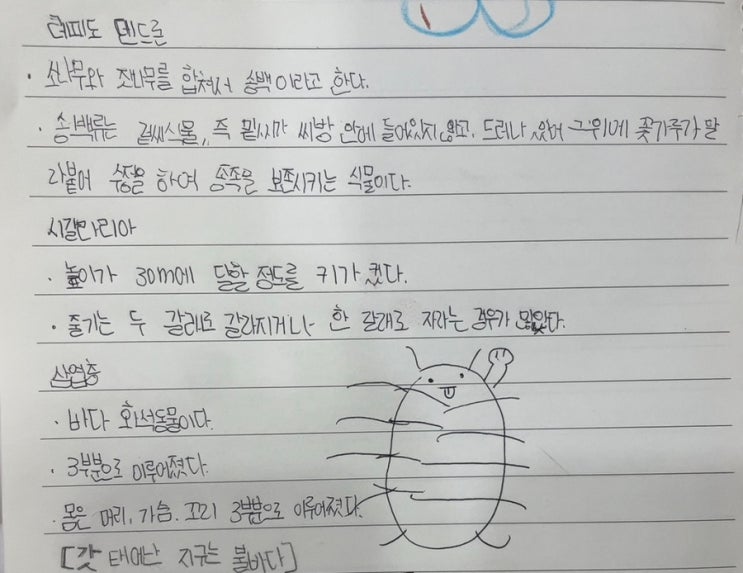 레피도 덴드론
· 소나무와 잣나무를 합쳐서 송백이라고 한다.
· 송백류는 겉씨식물, 즉 밑씨가 씨방 안에 들어있지 않고, 드러나 있어 그위에 꽃가루가 말
라붙어 수정을 하여 종족을 보존시키는 식물이다.
시길라리아
· 높이가 30m에 달할 정도로 키가 컸다.
· 줄기는 두 갈래로 갈라지거나 한 갈래로 자라는 경우가 많았다.
삼엽충
· 바다 화석동물이다.
· 3부분으로 이루어졌다.
· 몸은 머리, 가슴. 꼬리 3부분으로 이루어졌다.
[갓 태어난 지구는 불바다]